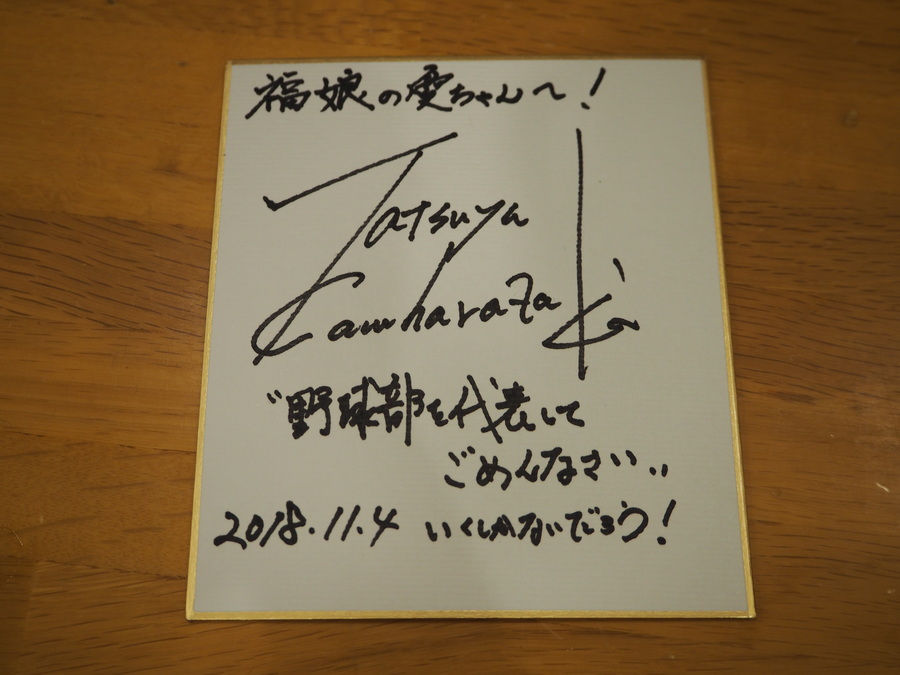 福娘の雯ちゃんへ!
Tatsuya
Kawharazaki
"野球部を代表して
ごめんなさい"
2018.11.4 いくしかないでしょう!